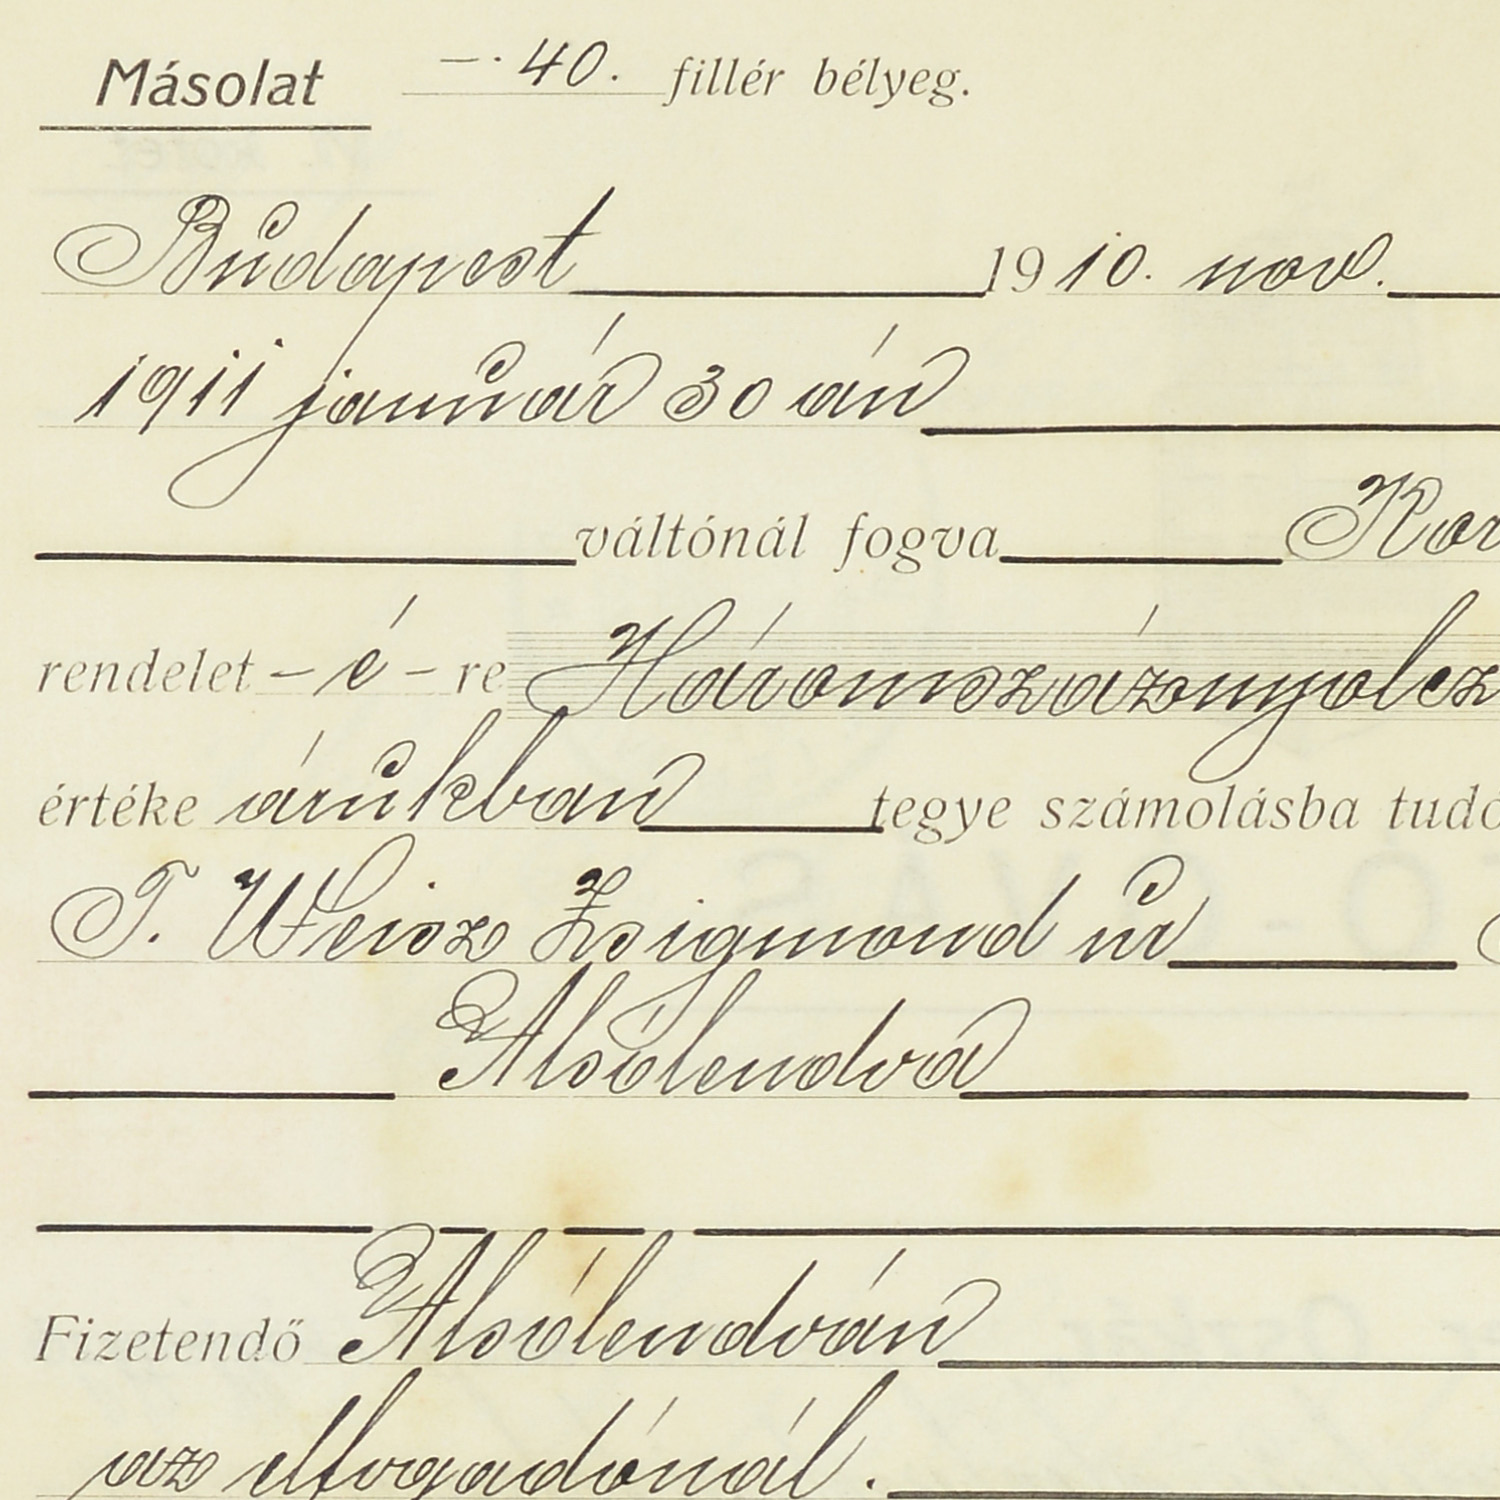 Másolat —. 40. fillér bélyeg.
Budapest 1910. nov.
1911 január 30 án
váltónál fogva Kor
rendelet – é – re Háromszáznyolcz
értéke árukban tegye számolásba tudó
T. Weisz Zsigmond úr
Alsólendva
Fizetendő Alsólendván
az elfogadónál.